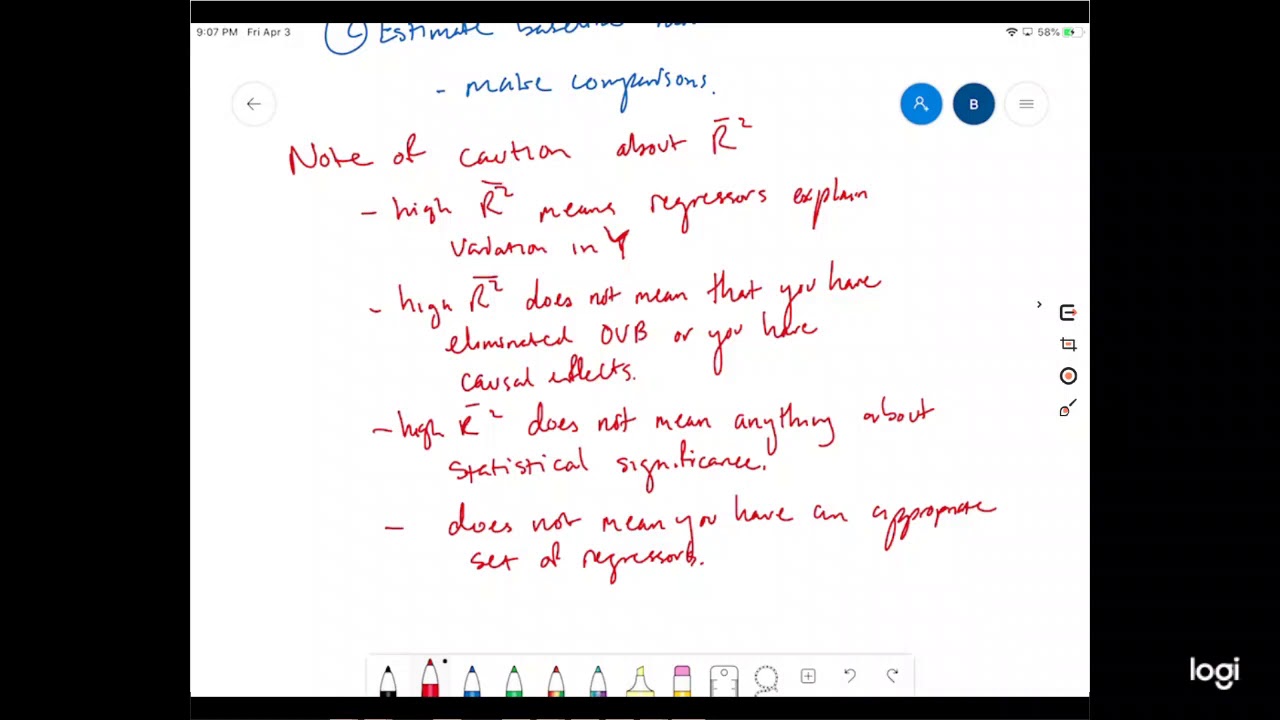 9:07 PM Fri Apr 3
58%
② Estimate baseline
- make comparisons.
B
Note of caution about R̄²
- high R̄² means regressors explain
variation in Y
- high R̄² does not mean that you have
eliminated OVB or you have
causal effects.
- high R̄² does not mean anything about
statistical significance.
- does not mean you have an appropriate
set of regressors.
logi